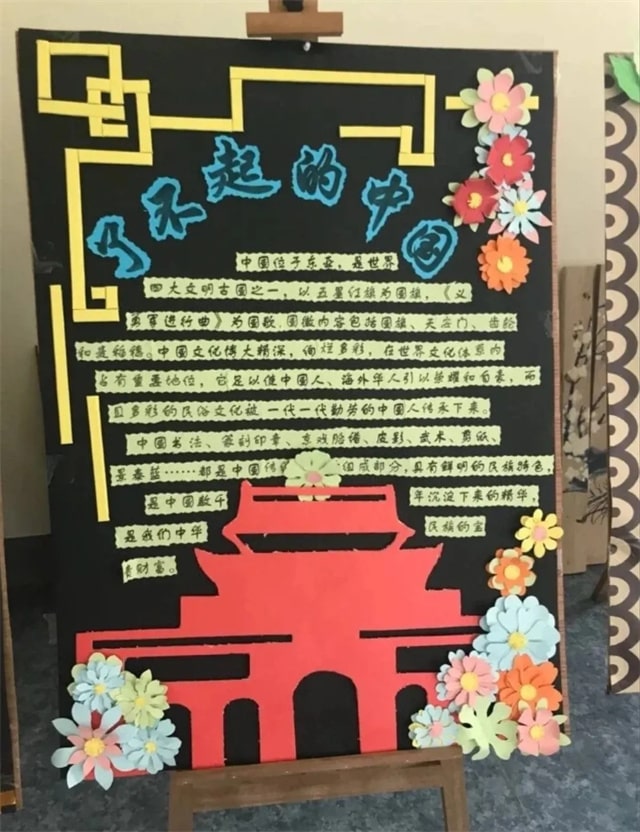 了不起的中国
中国位于东亚，是世界
四大文明古国之一，以五星红旗为国旗，《义
勇军进行曲》为国歌，国徽内容包括国旗、天安门、齿轮
和麦稻穗。中国文化博大精深，绚烂多彩，在世界文化体系内
占有重要地位，它足以使中国人、海外华人引以荣耀和自豪，而
且多彩的民俗文化被一代一代勤劳的中国人传承下来。
中国书法、篆刻印章、京戏脸谱、皮影、武术、剪纸、
景泰蓝……都是中国传 组成部分，具有鲜明的民族特色，
是中国数千 年沉淀下来的精华，
是我们中华 民族的宝
贵财富。